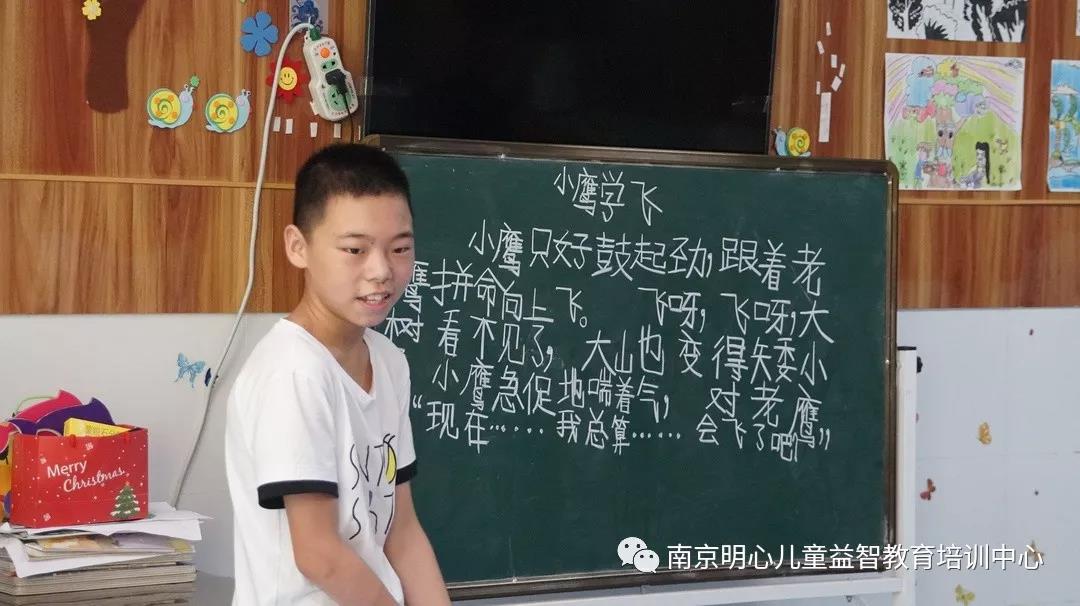 小鹰学飞
小鹰只好鼓起劲，跟着老
鹰拼命向上飞。 飞呀，飞呀，大
树看不见了，大山也变得矮小
小鹰急促地喘着气， 对老鹰
“现在……我总算……会飞了吧！”
Merry
Christmas
南京明心儿童益智教育培训中心